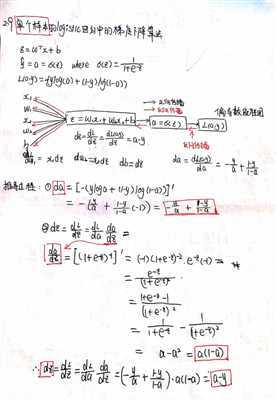 2.9 单个样本的logistic回归中的梯度下降算法
z = ωᵀx + b
ŷ = a = σ(z) where σ(z) = 1/(1+e^-z)
L(a,y) = -(y log(a) + (1-y) log(1-a))
x₁
w₁
x₂
w₂
b
z = w₁x₁ + w₂x₂ + b
a = σ(z)
L(a,y)
dz = dL/dz = dL(a,y)/dz = a-y
da = dL(a,y)/da = -y/a + (1-y)/(1-a)
dw₁ = x₁dz dw₂ = x₂dz db = dz
推导过程: ① da = [-(y log a + (1-y) log(1-a))]'
= -(y/a + (1-y)/(1-a)·(-1)) = -y/a + (1-y)/(1-a)
② dz = dL/dz = dL/da · da/dz =
da/dz = [(1+e^-z)^-1]' = (-1)(1+e^-z)^-2 · e^-z(-1) =
= e^-z/(1+e^-z)²
= (1+e^-z-1)/(1+e^-z)²
= 1/(1+e^-z) - 1/(1+e^-z)²
= a-a² = a(1-a)
∴ dz = dL/dz = dL/da · da/dz = (-y/a + (1-y)/(1-a)) · a(1-a) = a-y